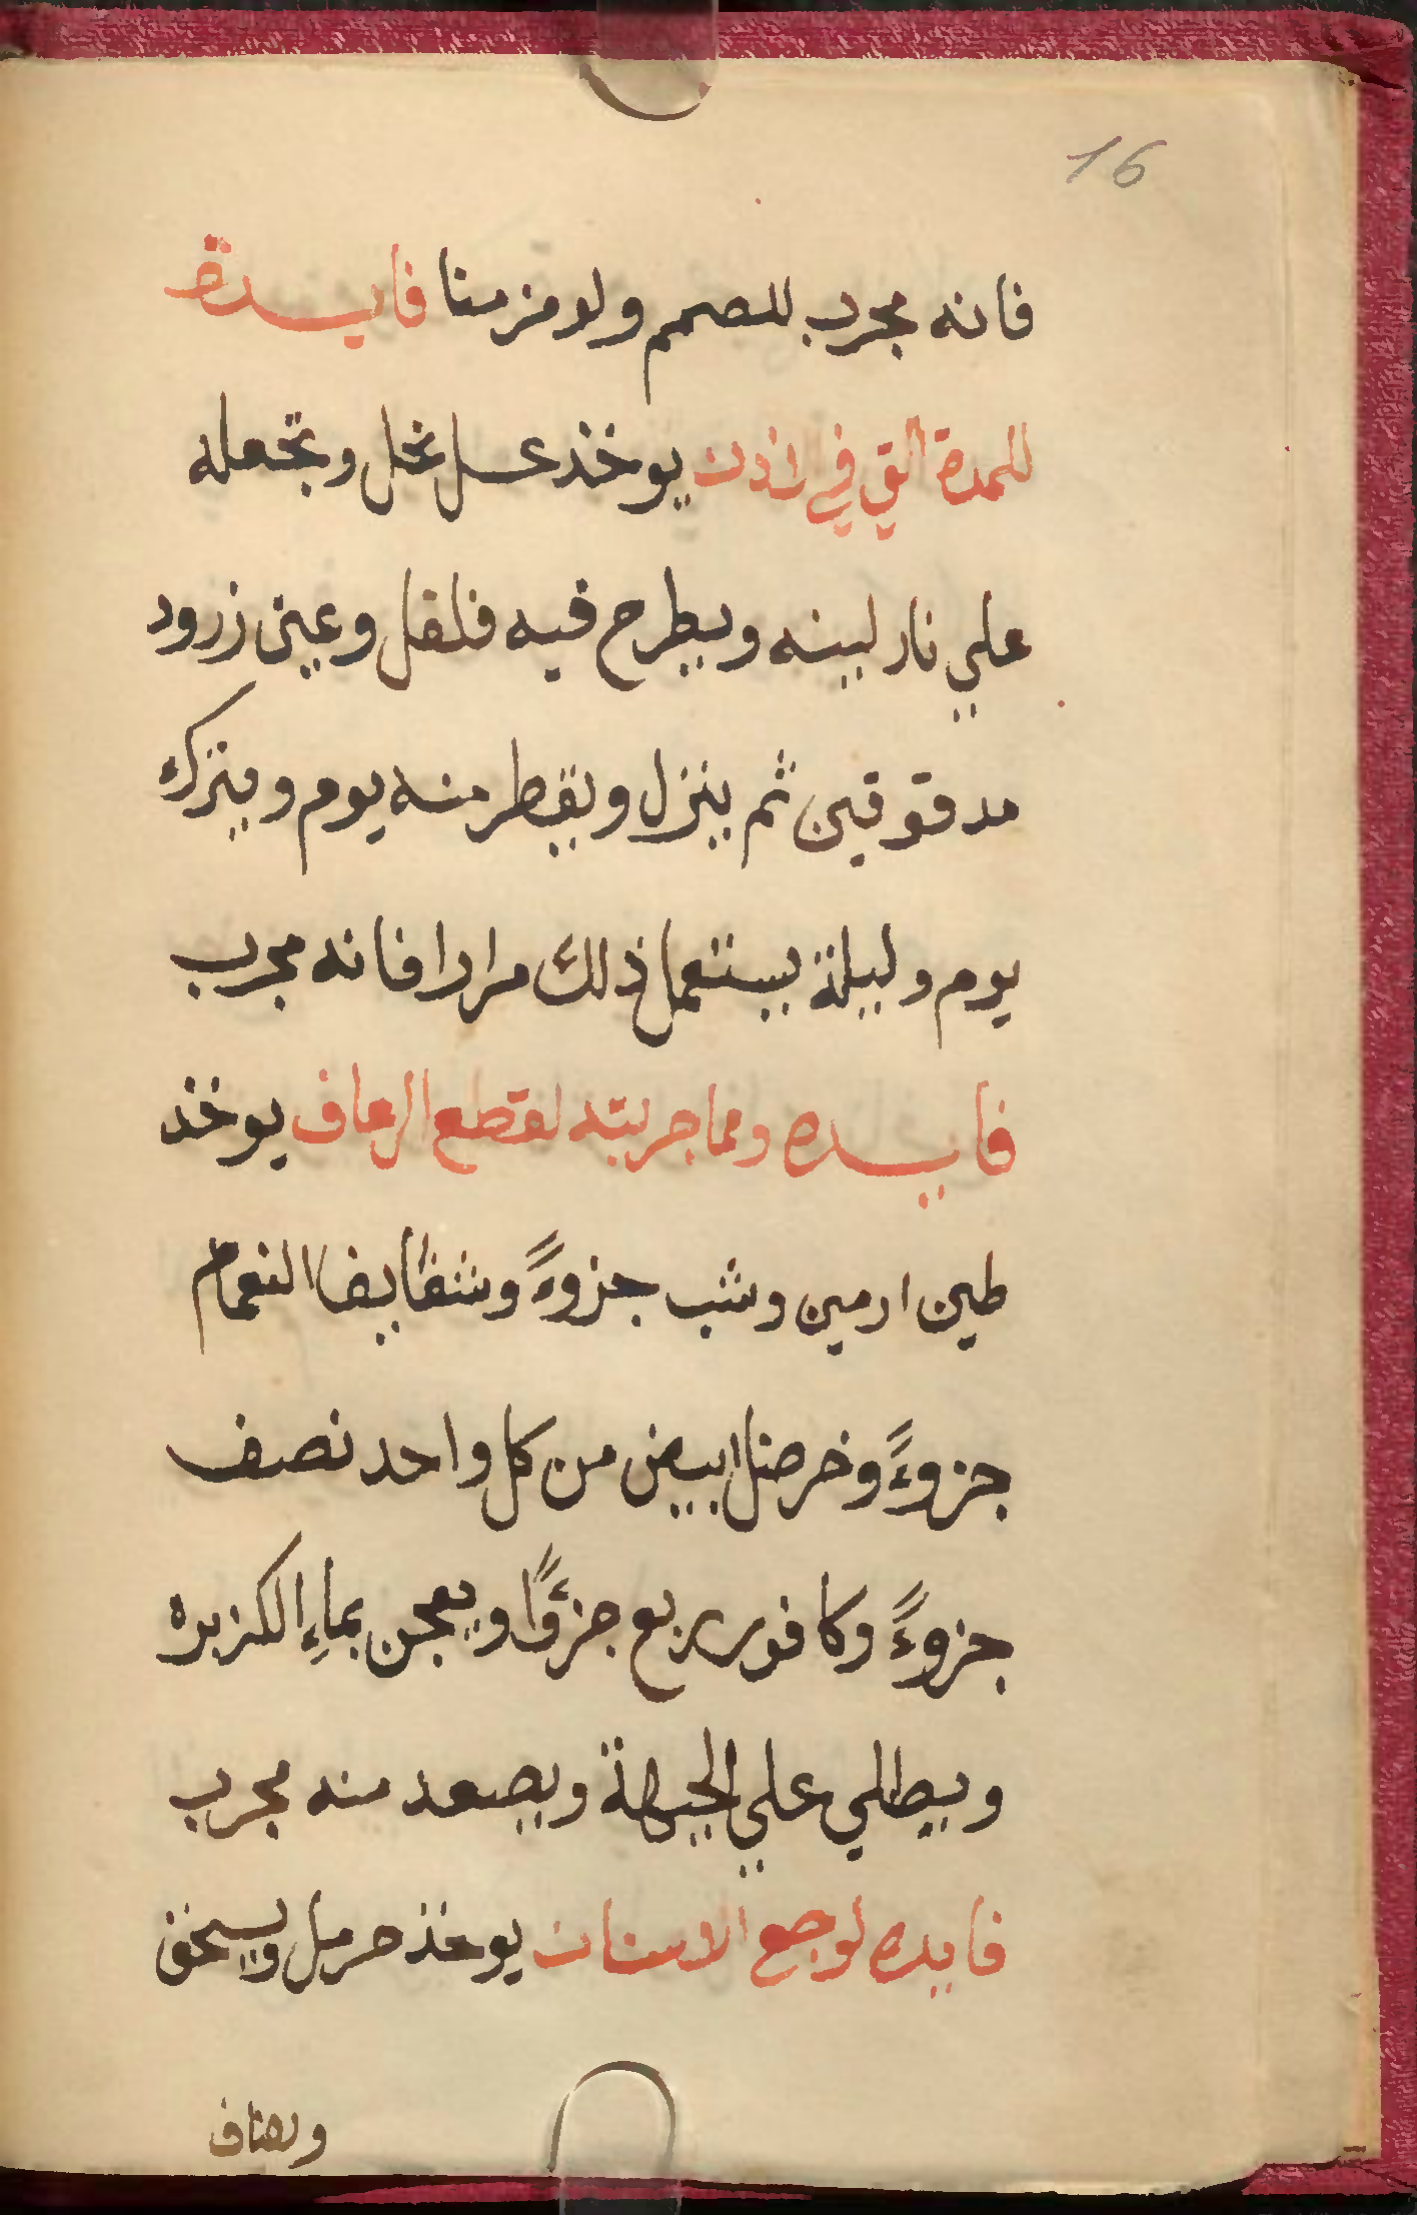 16
فانه مجرب للصمم ولو مزمنا فايدة
للمدة التي في الاذن يوخذ عسل نحل وتجعله
علي نار لينه ويطرح فيه فلفل وعين زرود
مدقوقين ثم ينزل ويقطر منه يوم ويترك
يوم وليلة يستعمل ذلك مرارا فانه مجرب
فايده ومما جربته لقطع الرعاف يوخذ
طين ارمين وشب جزوءً وشقايق النعمام
جزوءً وخرصل ابيض من كل واحد نصف
جزوءً وكافور ربع جزؤًا ويعجن بماءِ الكزبره
ويطلي علي الجبهة ويصعد منه مجرب
فايده لوجع الاسنان يوخذ حرمل ويسحق
ويضاف